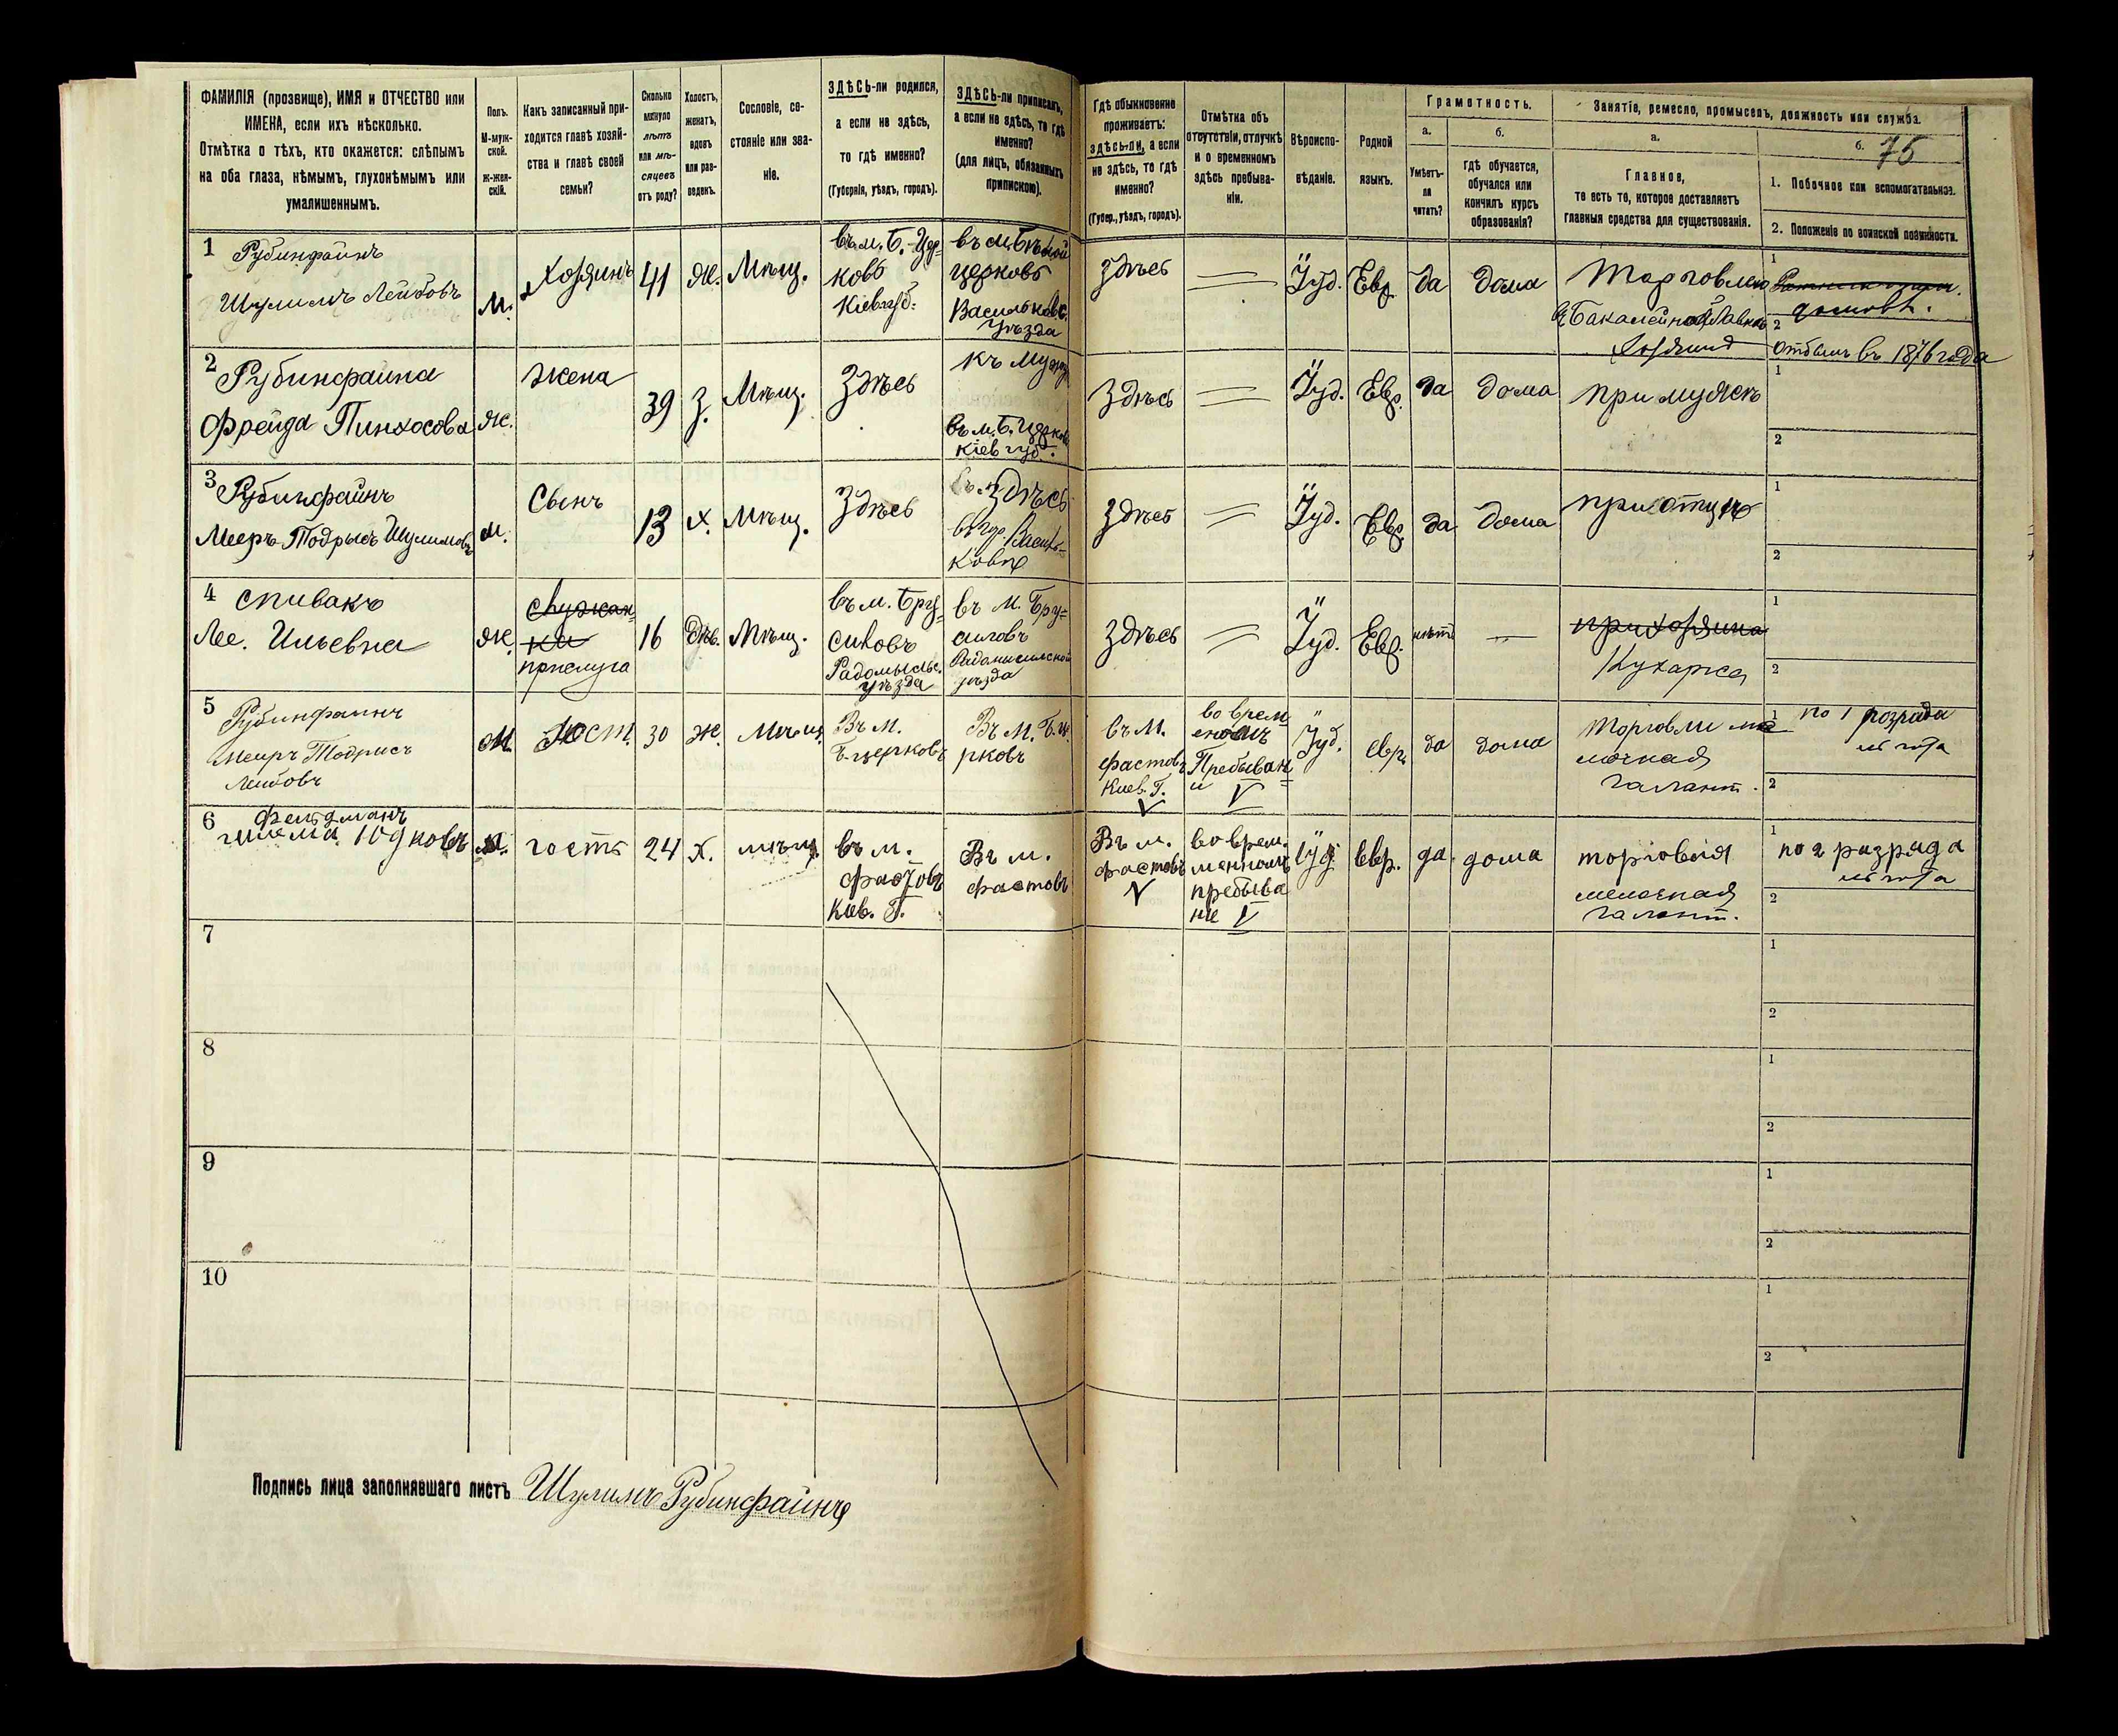 ФАМИЛІЯ (прозвище), ИМЯ и ОТЧЕСТВО или
ИМЕНА, если ихъ нѣсколько.
Отмѣтка о тѣхъ, кто окажется: слѣпымъ
на оба глаза, нѣмымъ, глухонѣмымъ или
умалишеннымъ.
Полъ.
М-муж-
ской.
Ж-жен-
скій.
Какъ записанный при-
ходится главѣ хозяй-
ства и главѣ своей
семьи?
Сколько
минуло
лѣтъ
или мѣ-
сяцевъ
отъ роду?
Холостъ,
женатъ,
вдовъ
или раз-
веденъ.
Сословіе, со-
стояніе или зва-
ніе.
ЗДѢСЬ-ли родился,
а если не здѣсь,
то гдѣ именно?
(Губернія, уѣздъ, городъ).
ЗДѢСЬ-ли приписанъ,
а если не здѣсь, то гдѣ
именно?
(для лицъ, обязанныхъ
припискою).
Гдѣ обыкновенно
проживаетъ:
здѣсь-ли, а если
не здѣсь, то гдѣ
именно?
(Губер., уѣздъ, городъ).
Отмѣтка объ
отсутствіи, отлучкѣ
и о временномъ
здѣсь пребыва-
ніи.
Вѣроиспо-
вѣданіе.
Родной
языкъ.
Грамотность.
а.
Умѣетъ-
ли
читать?
б.
Гдѣ обучается,
обучался или
кончилъ курсъ
образованія?
Занятіе, ремесло, промыселъ, должность или служба.
а.
Главное,
то есть то, которое доставляетъ
главныя средства для существованія.
б.
75
1. Побочное или вспомогательное.
2. Положеніе по воинской повинности.
1
Рубинфайнъ
Шулимъ Лейбовъ
М.
Хозяинъ
41
Ж.
Мѣщ.
въ м. Б.-Цер-
ковь
Кіев губ.
въ м. Бѣлой
церковь
Васильковс.
уѣзда
здѣсь
Іуд.
Евр.
да
дома
Торговлею
Бакалейной Лавки
Хозяинъ
1
2
Отбылъ въ 1876 года
2
Рубинфаина
Фрейда Пинхосова
Ж.
жена
39
З.
Мѣщ.
Здѣсь
къ мужу
въ м. Б. Церковь
Кіев губ.
Здѣсь
Іуд.
Евр.
да
дома
при мужѣ
1
2
3
Рубинфайнъ
Мееръ Тодрысъ Шулимовъ
М.
Сынъ
13
Х.
Мѣщ.
Здѣсь
Здѣсь
Василь-
ковѣ
здѣсь
Іуд.
Евр.
да
дома
при отцѣ
1
2
4
Спивакъ
Лее. Ильевна
Ж.
служан
ки
прислуга
16
дѣв.
Мѣщ.
въ м. Бру-
силовъ
Радомысльс.
уѣзда
въ м. Бру-
силовъ
Радомысльской
уѣзда
здѣсь
Іуд.
Евр.
нѣтъ
при хозяина
Кухарка
1
2
5
Рубинфаинъ
Меиръ Тодрисъ
Леибовъ
М.
Гост.
30
Ж.
Мѣщ.
Въ М.
Б. церковъ
Въ М. Б. це
рковъ
въ М.
Фастовъ
Киев. Г.
во врем
еномъ
Пребыван
и
Іуд.
евр.
да
дома
Торговли ме
лочная
галант.
1
по 1 розрада
2
6
Фельдманъ
Юдковъ
М.
гость
24
Х.
мѣщ.
въ м.
Фастовъ
Кіев. Г.
Въ м.
Фастовъ
Въ м.
Фастовъ
во врем.
менномъ
пребыва
ніе
Іуд.
евр.
да
дома
торговля
мелочная
галант.
1
по 2 разряда
2
7
1
2
8
1
2
9
1
2
10
1
2
Подпись лица заполнявшаго листъ Шулимъ Рубинфайнъ